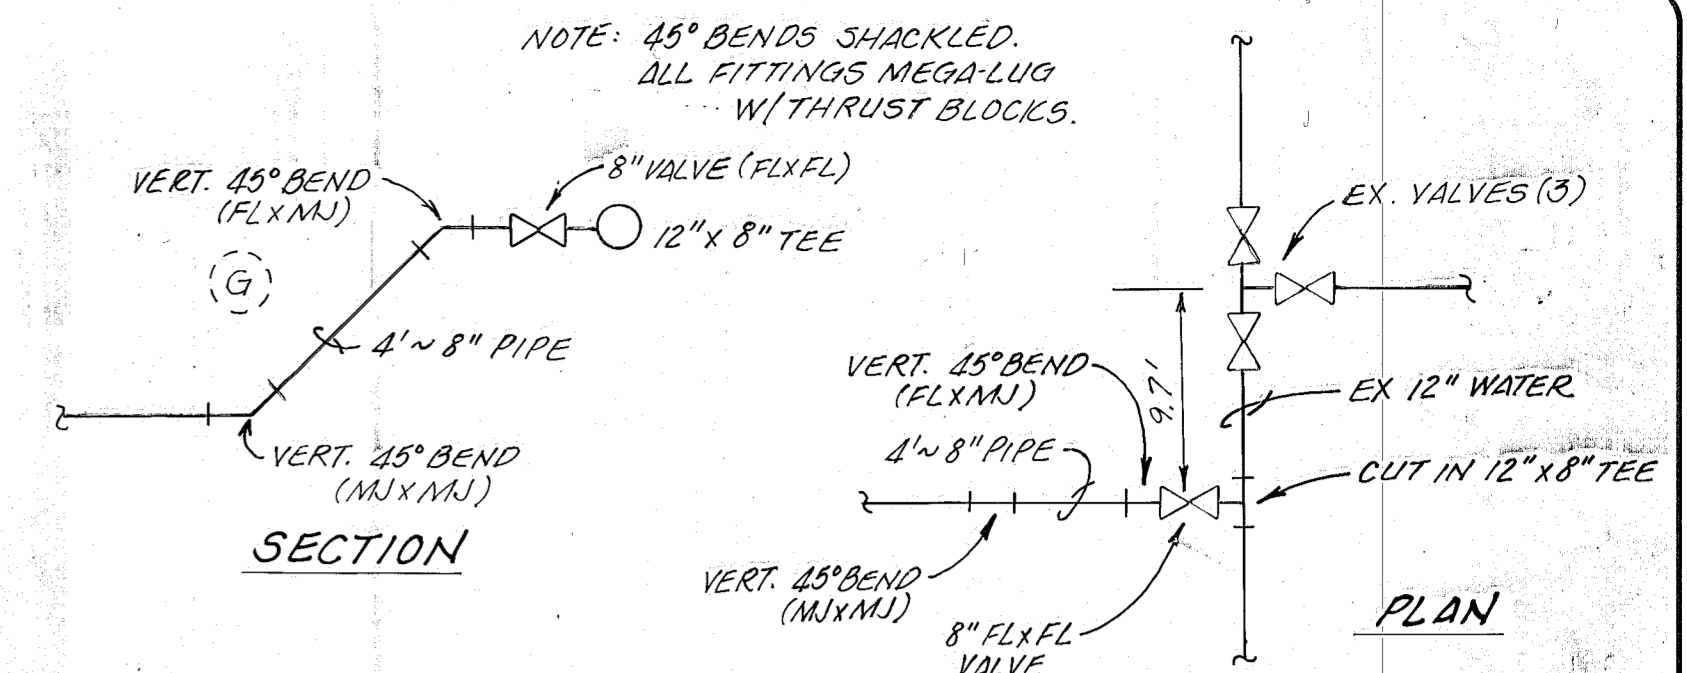 NOTE: 45° BENDS SHACKLED.
ALL FITTINGS MEGA-LUG
W/THRUST BLOCKS.
VERT. 45° BEND
(FLXMJ)
8" VALVE (FLXFL)
12"X 8" TEE
G
4'~ 8" PIPE
VERT. 45° BEND
(MJXMJ)
SECTION
EX. VALVES (3)
9.7'
VERT. 45° BEND
(FLXMJ)
EX 12" WATER
4'~ 8" PIPE
CUT IN 12"X 8" TEE
VERT. 45° BEND
(MJXMJ)
8" FLXFL
VALVE
PLAN